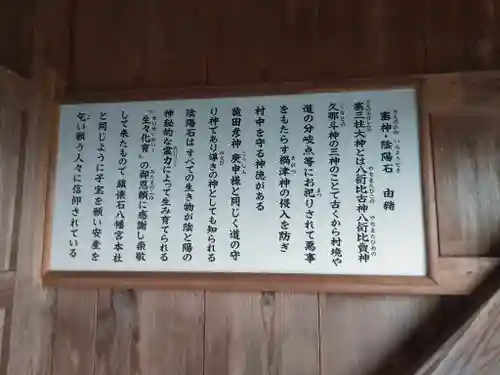 塞神・陰陽石　由緒
塞三柱大神とは八衢比古神八衢比賣神
久那斗神の三神のことで古くから村境や
道の分岐点等にお祀りされて悪事
をもたらす禍津神の侵入を防ぎ
村中を守る神徳がある
猿田彦神 庚申様と同じく道の守
り神であり導きの神としても知られる
陰陽石はすべての生き物が陰と陽の
神秘的な霊力によって生み育てられる
「生々化育」の御恩頼に感謝し崇敬
して来たもので鎮懐石八幡宮本社
と同じように子宝を願い安産を
乞い願う人々に信仰されている